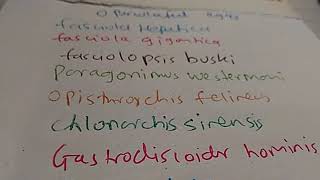 Operculated eggs
fasciola hepatica
fasciola gigantica
fasciolopsis buski
Paragonimus westermani
Opisthrorchis felineus
Chlonorchis sirensis
Gastrodisioidr hominis